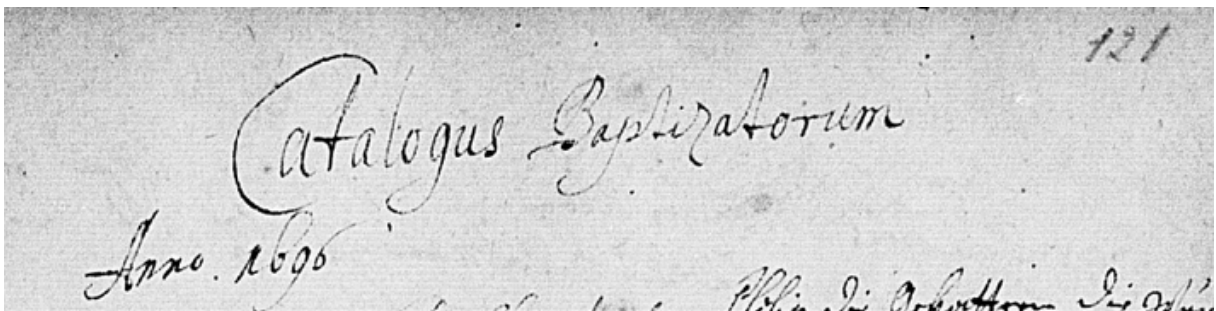 121
Catalogus Baptizatorum
Anno. 1696
die